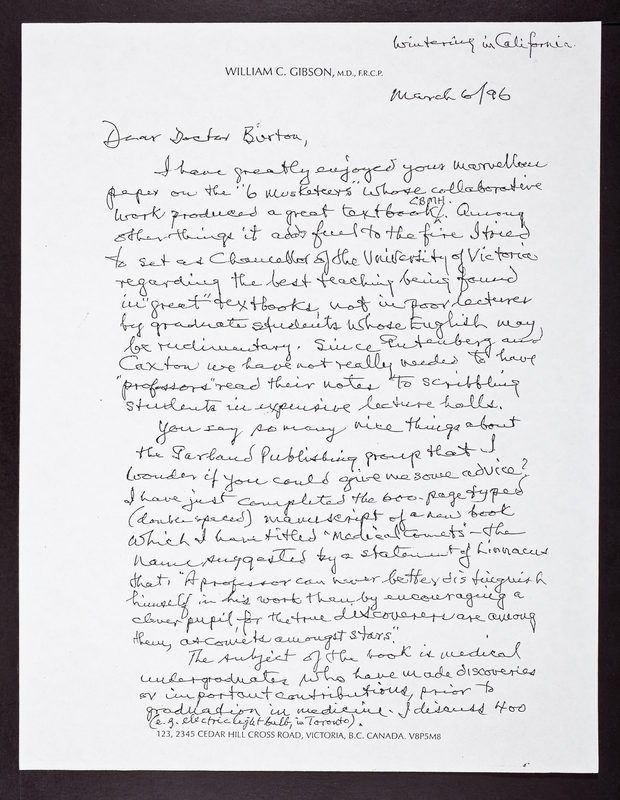 Wintering in California.
WILLIAM C. GIBSON, M.D., F.R.C.P.
March 6/96
Dear Doctor Burton,
I have greatly enjoyed your marvellous
paper on the "6 Musketeers" whose collaborative
CBMH.
work produced a great textbook. Among
other things it adds fuel to the fire I tried
to set as Chancellor of the University of Victoria
regarding the best teaching being found
in "great" textbooks, not in poor lectures
by graduate students whose English may
be rudimentary. Since Gutenberg and
Caxton we have not really needed to have
"professors" read their notes to scribbling
students in expensive lecture halls.
You say so many nice things about
the Garland Publishing group that I
wonder if you could give me some advice?
I have just completed the 600-page typed
(double spaced) manuscript of a new book
which I have titled "Medical Comets" - the
name suggested by a statement of Linnaeus
that, "A professor can never better distinguish
himself in his work than by encouraging a
clever pupil, for the true discoverers are among
them, as comets amongst stars."
The subject of the book is medical
undergraduates who have made discoveries
or important contributions, prior to
graduation in medicine. I discuss 400
(e.g. electric light bulb, in Toronto).
123, 2345 CEDAR HILL CROSS ROAD, VICTORIA, B.C. CANADA. V8P5M8